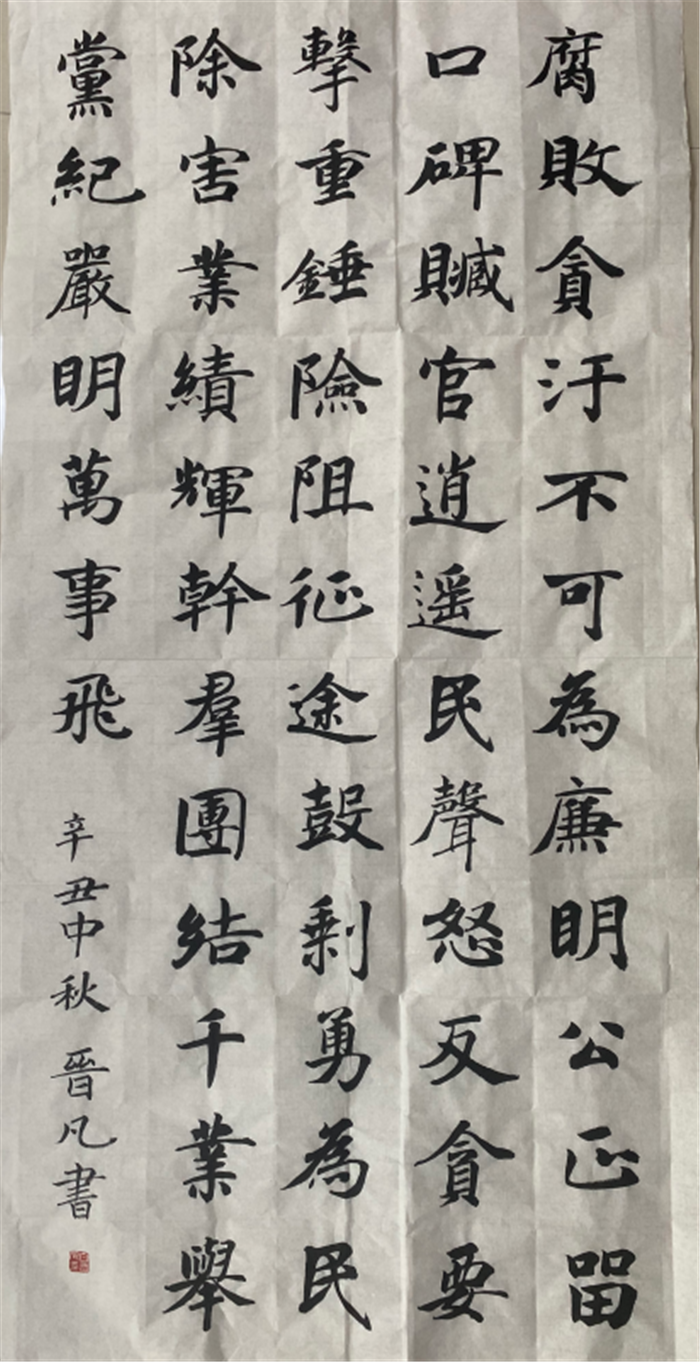 腐敗貪汙不可為廉明公正畱
口碑贓官逍遥民聲怒反貪要
擊重錘險阻征途鼓剩勇為民
除害業績輝幹羣團結千業舉
黨紀嚴明萬事飛
辛丑中秋 晉凡書